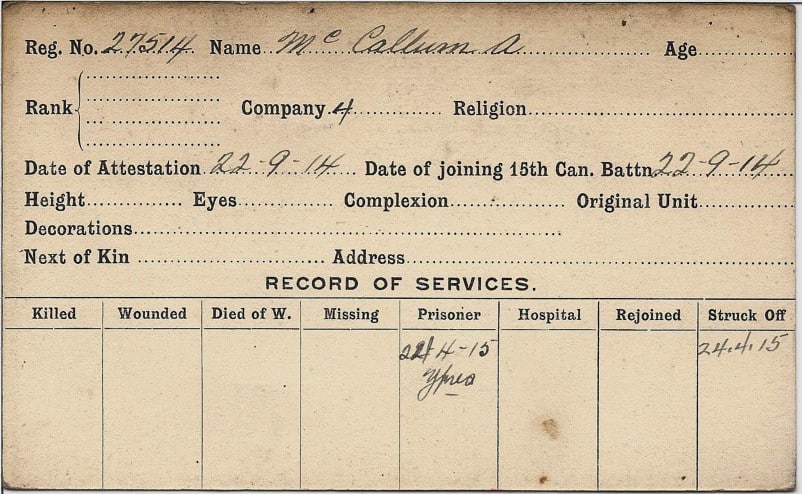 Reg. No. 27514 Name Mc Callum A Age
Rank Company 4 Religion
Date of Attestation 22-9-14 Date of joining 15th Can. Battn 22-9-14
Height Eyes Complexion Original Unit
Decorations
Next of Kin Address
RECORD OF SERVICES.
Killed Wounded Died of W. Missing Prisoner Hospital Rejoined Struck Off
4-15 24.4.15
Ypres